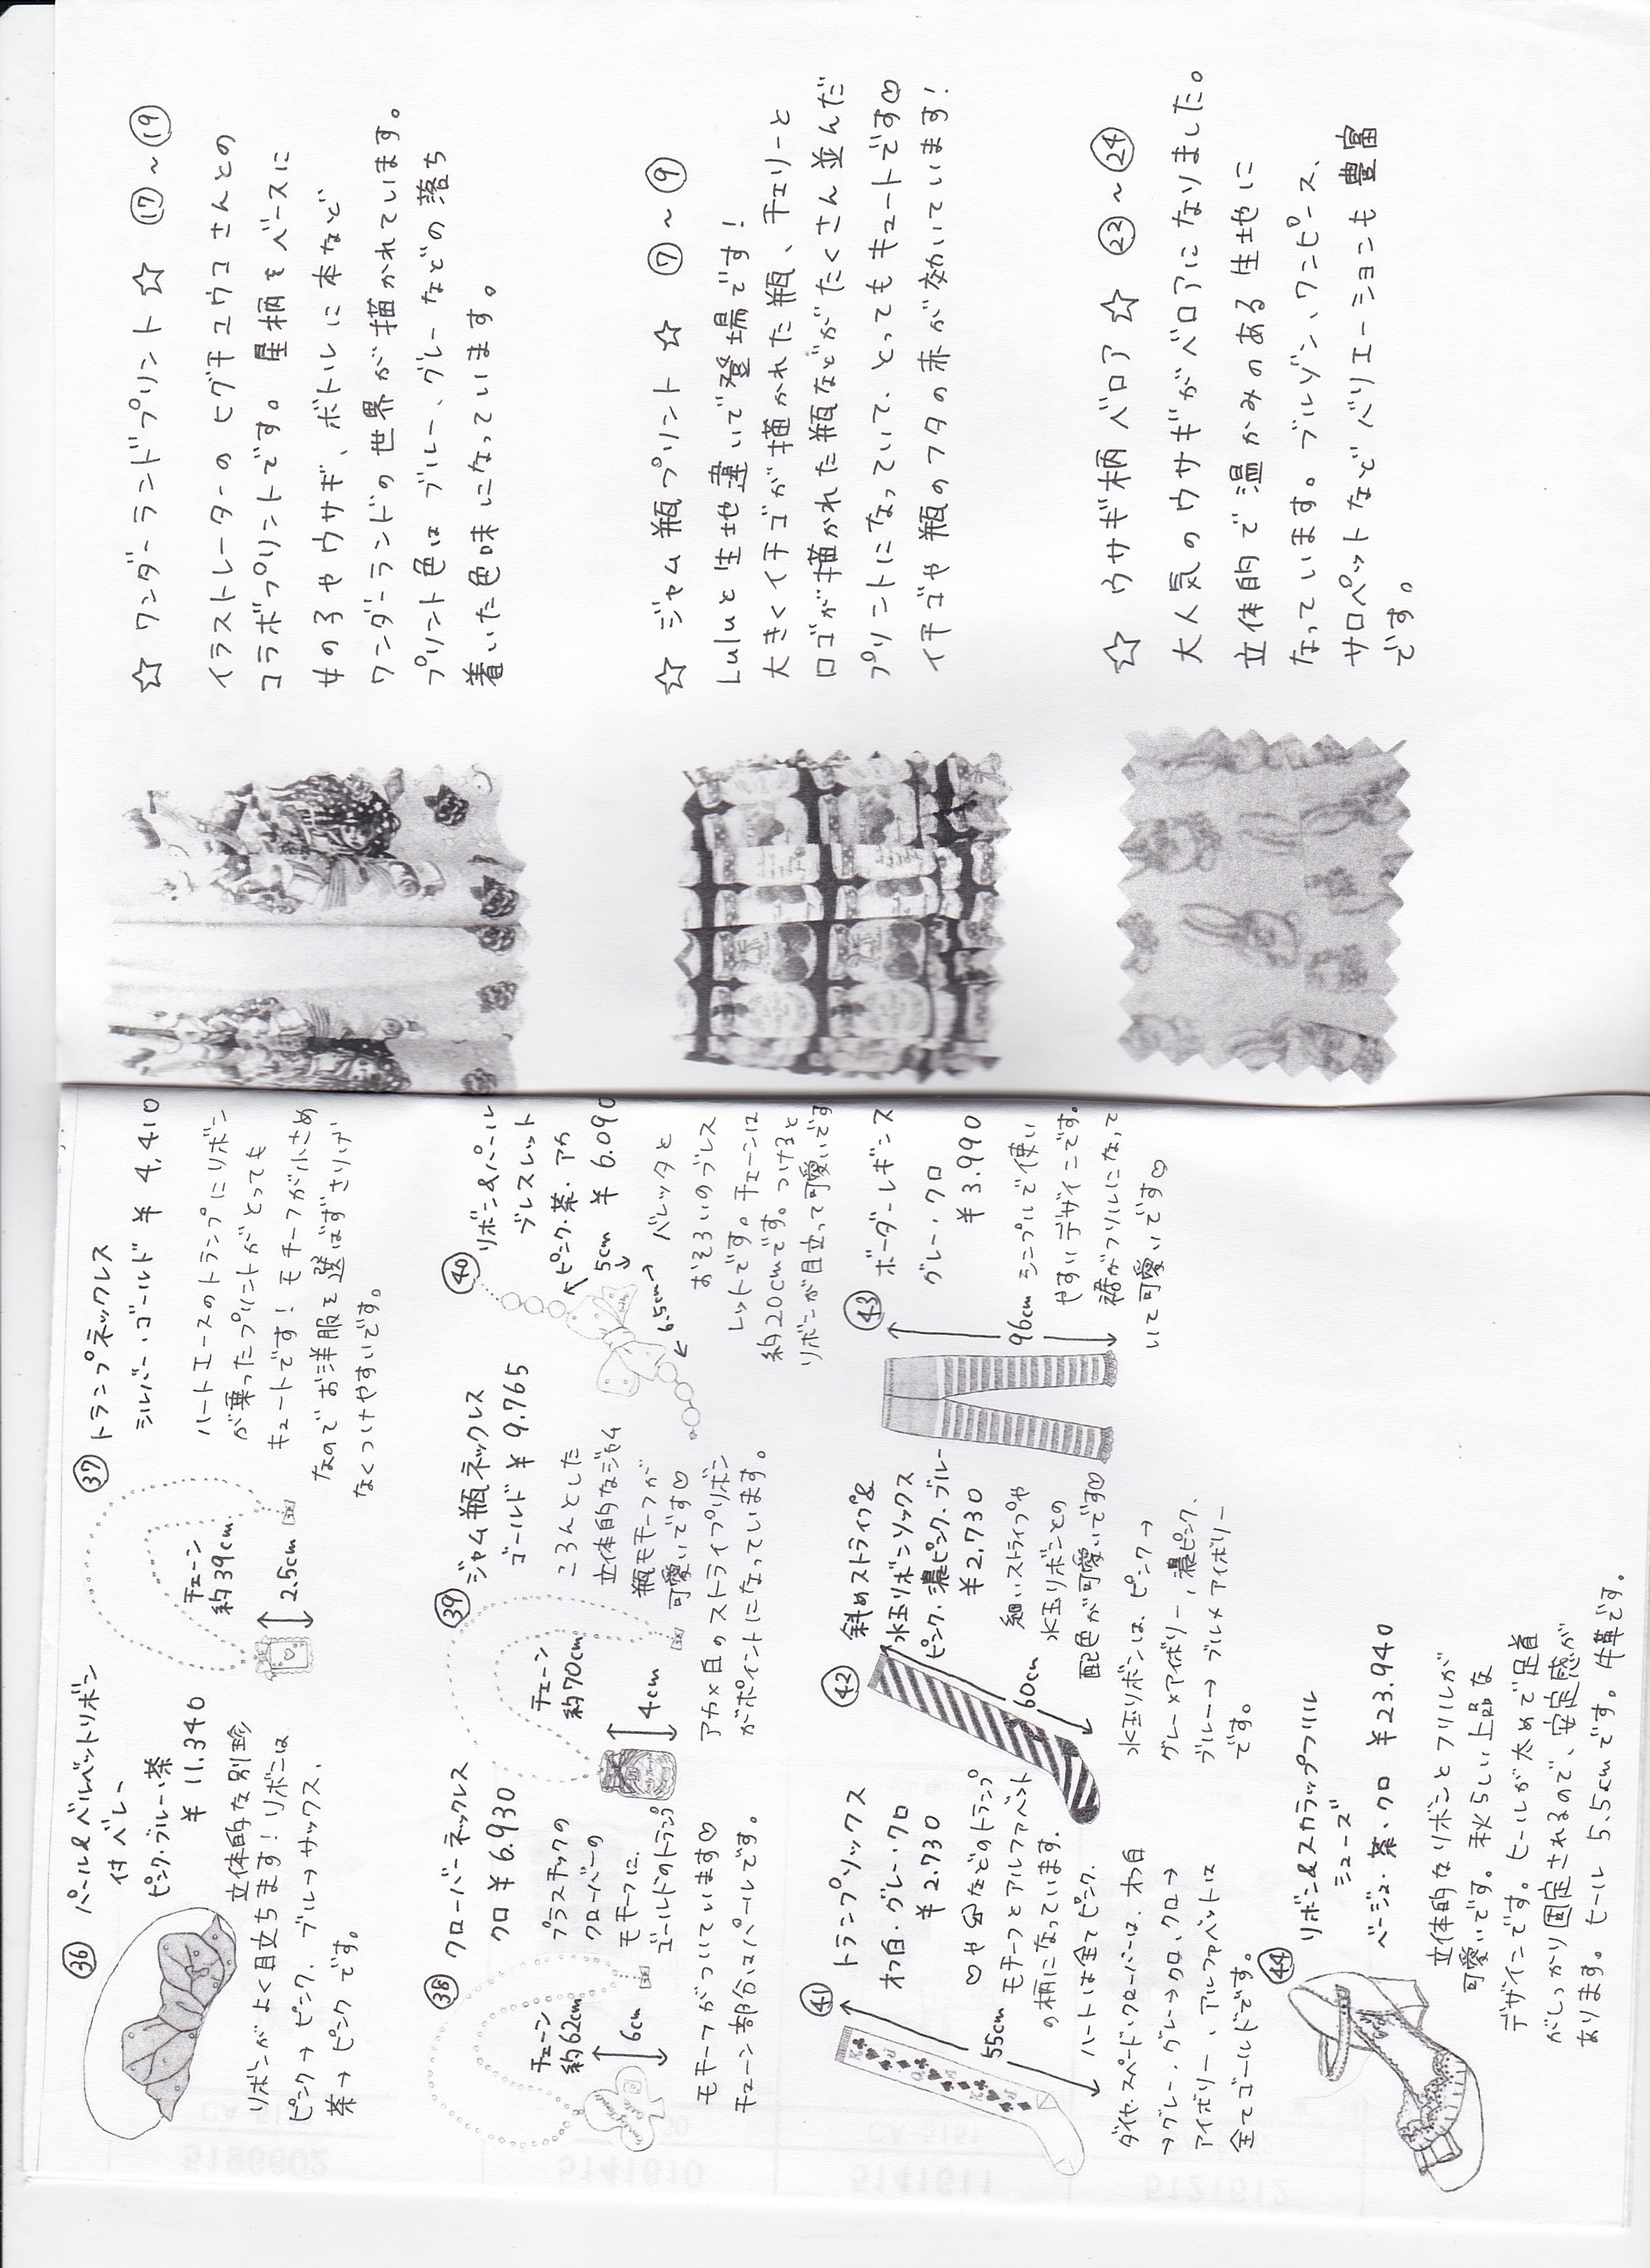 ㊱ パール&ベルベットリボン
付 バレー
ピンク・ブルー・茶
¥ 11.340
立体的な別珍
リボンがよく目立ちます！リボンは
ピンク→ピンク、ブルー→サックス、
茶→ピンクです。
㊲ トランプネックレス
シルバー・ゴールド ¥ 4,410
チェーン
約39cm
2.5cm
ハートエースのトランプにリボン
が乗ったプリントがとっても
キュートです！モチーフが小さめ
なのでお洋服を選ばずさりげ
なくつけやすいです。
㊳ クローバーネックレス
クロ ¥ 6.930
チェーン
約62cm
6cm
プラスチックの
クローバーの
モチーフに、
ゴールドのトランプ
モチーフがついています♡
チェーン部分はパールです。
㊴ ジャム瓶ネックレス
ゴールド ¥ 9.765
チェーン
約70cm
4cm
ころんとした
立体的なジャム
瓶モチーフが
可愛いです♡
アカ×白のストライプリボン
がポイントになっています。
㊵ リボン&パール
ブレスレット
ピンク・茶・アカ
5cm ¥ 6.090
6.5cm
バレッタと
おそろいのブレス
レットです。チェーンは
約20cmです。つけると
リボンが目立って可愛いです
㊶ トランプソックス
オフ白・グレー・クロ
¥ 2.730
55cm
♡や♧などのトランプ
モチーフとアルファベット
の柄になっています。
ハートは全てピンク、
ダイヤ・スペード・クローバーは、オフ白
→グレー・グレー→クロ、クロ→
アイボリー、アルファベットは
全てゴールドです。
㊷ 斜めストライプ&
水玉リボンソックス
ピンク・濃ピンク・ブルー
¥2.730
60cm
細いストライプや
水玉リボンとの
配色が可愛いです♡
水玉リボンは、ピンク→
グレー×アイボリー、濃ピンク、
ブルー→ブルー×アイボリー
です。
㊸ ボーダーレギンス
グレー・クロ
¥ 3.990
96cm
シンプルで使い
やすいデザインです。
裾がフリルになって
いて可愛いです♡
㊹ リボン&スカラップフリル
シューズ
ベージュ・茶・クロ ¥23.940
立体的なリボンとフリルが
可愛いです。秋らしい上品な
デザインです。ヒールが太めで足首
がしっかり固定されるので、安定感が
あります。ヒール 5.5cmです。牛革です。
☆ ワンダーランドプリント ☆ ⑰～⑲
イラストレーターのヒグチユウコさんとの
コラボプリントです。星柄をベースに
女の子やウサギ、ボトルに本など
ワンダーランドの世界が描かれています。
プリント色はブルー、グレーなどの落ち
着いた色味になっています。
☆ ジャム瓶プリント ☆ ⑦～⑨
Luluと生地違いで登場です！
大きくイチゴが描かれた瓶、チェリーと
ロゴが描かれた瓶などがたくさん並んだ
プリントになっていて、とってもキュートです♡
イチゴや瓶のフタの赤が効いています！
☆ ウサギ柄ベロア ☆ ㉓～㉔
大人気のウサギがベロアになりました。
立体的で温かみのある生地に
なっています。ブルゾン、ワンピース、
サロペットなどバリエーションも豊富
です。